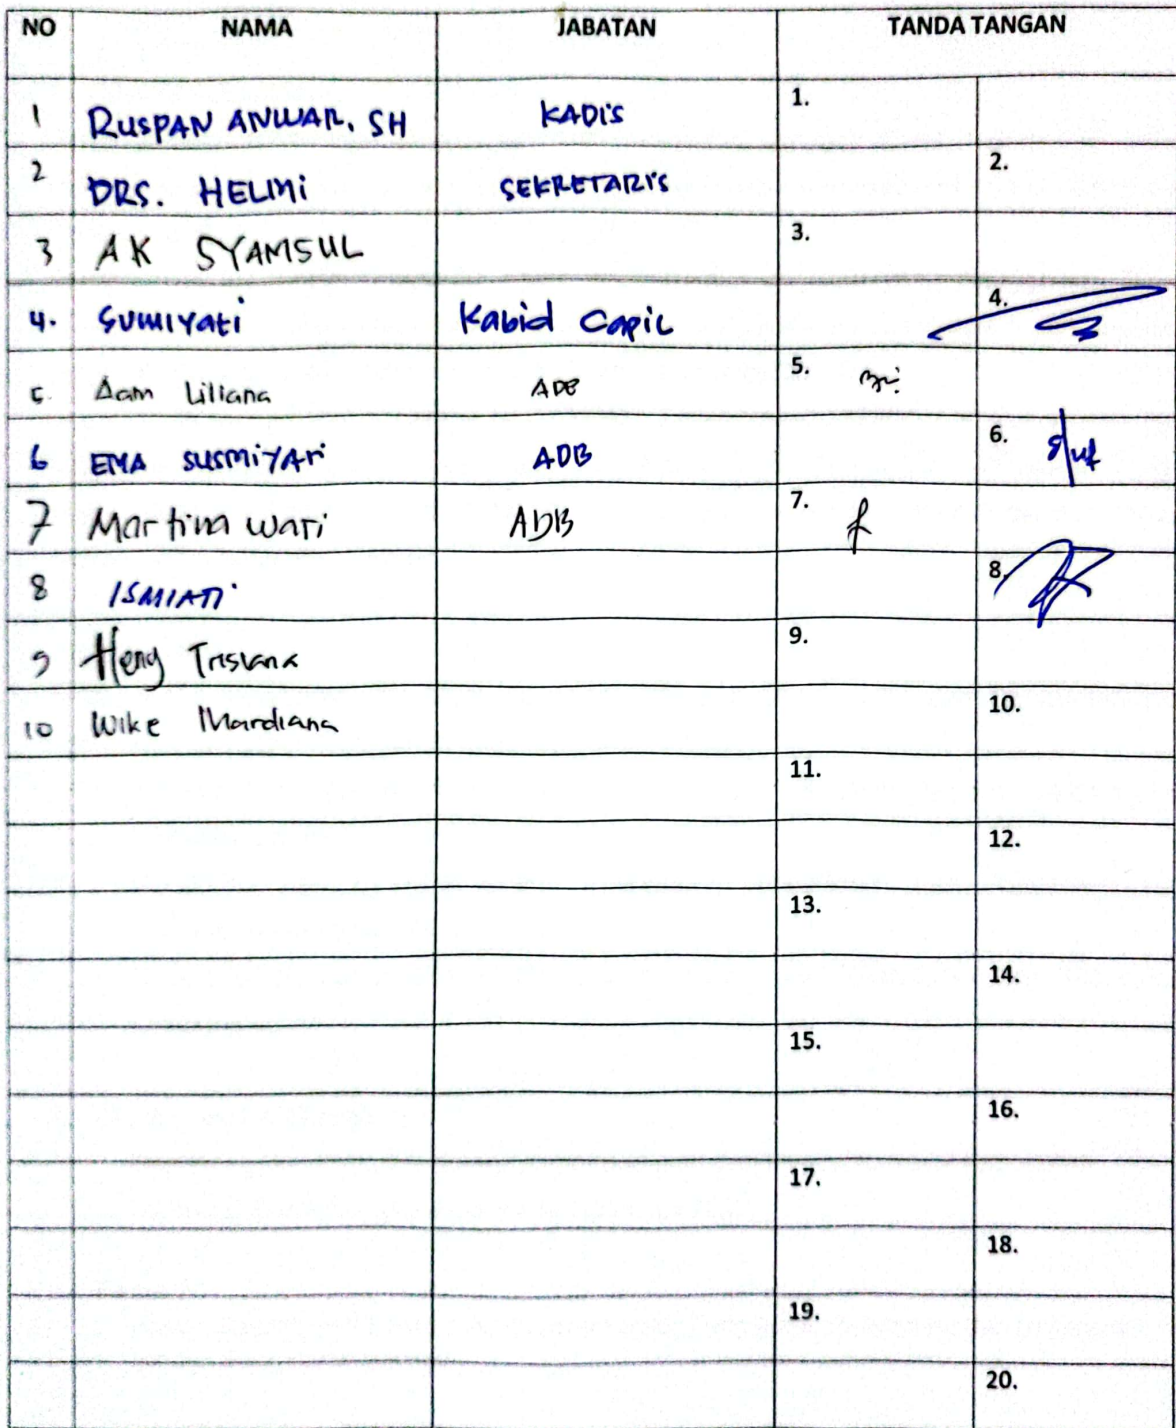 NO NAMA JABATAN TANDA TANGAN
1 RUSPAN ANWAR, SH KADIS 1.
2 DRS. HELMI SEKRETARIS 2.
3 AK SYAMSUL 3.
4. Sumiyati Kabid Capil 4.
5. Aam Liliana ADB 5.
6 EMA SUSMIYATI ADB 6.
7 Martina Wari ADB 7.
8 ISMIATI 8.
9 Heng 9.
10 Wike Mardiana 10.
11.
12.
13.
14.
15.
16.
17.
18.
19.
20.